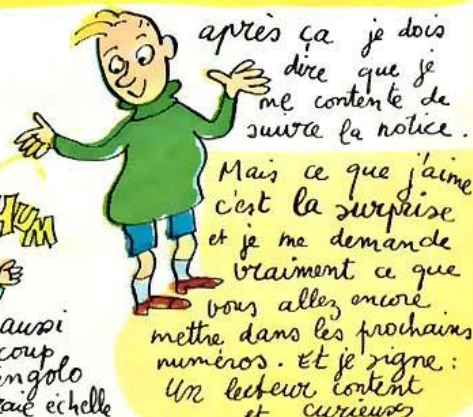 après ça je dois
dire que je
me contente de
suivre la notice.
Mais ce que j'aime
c'est la surprise
et je me demande
vraiment ce que
vous allez encore
mettre dans les prochains
numéros. Et je signe :
Un lecteur content
et curieux
HUM
aussi
coup
ngolo
raie échelle